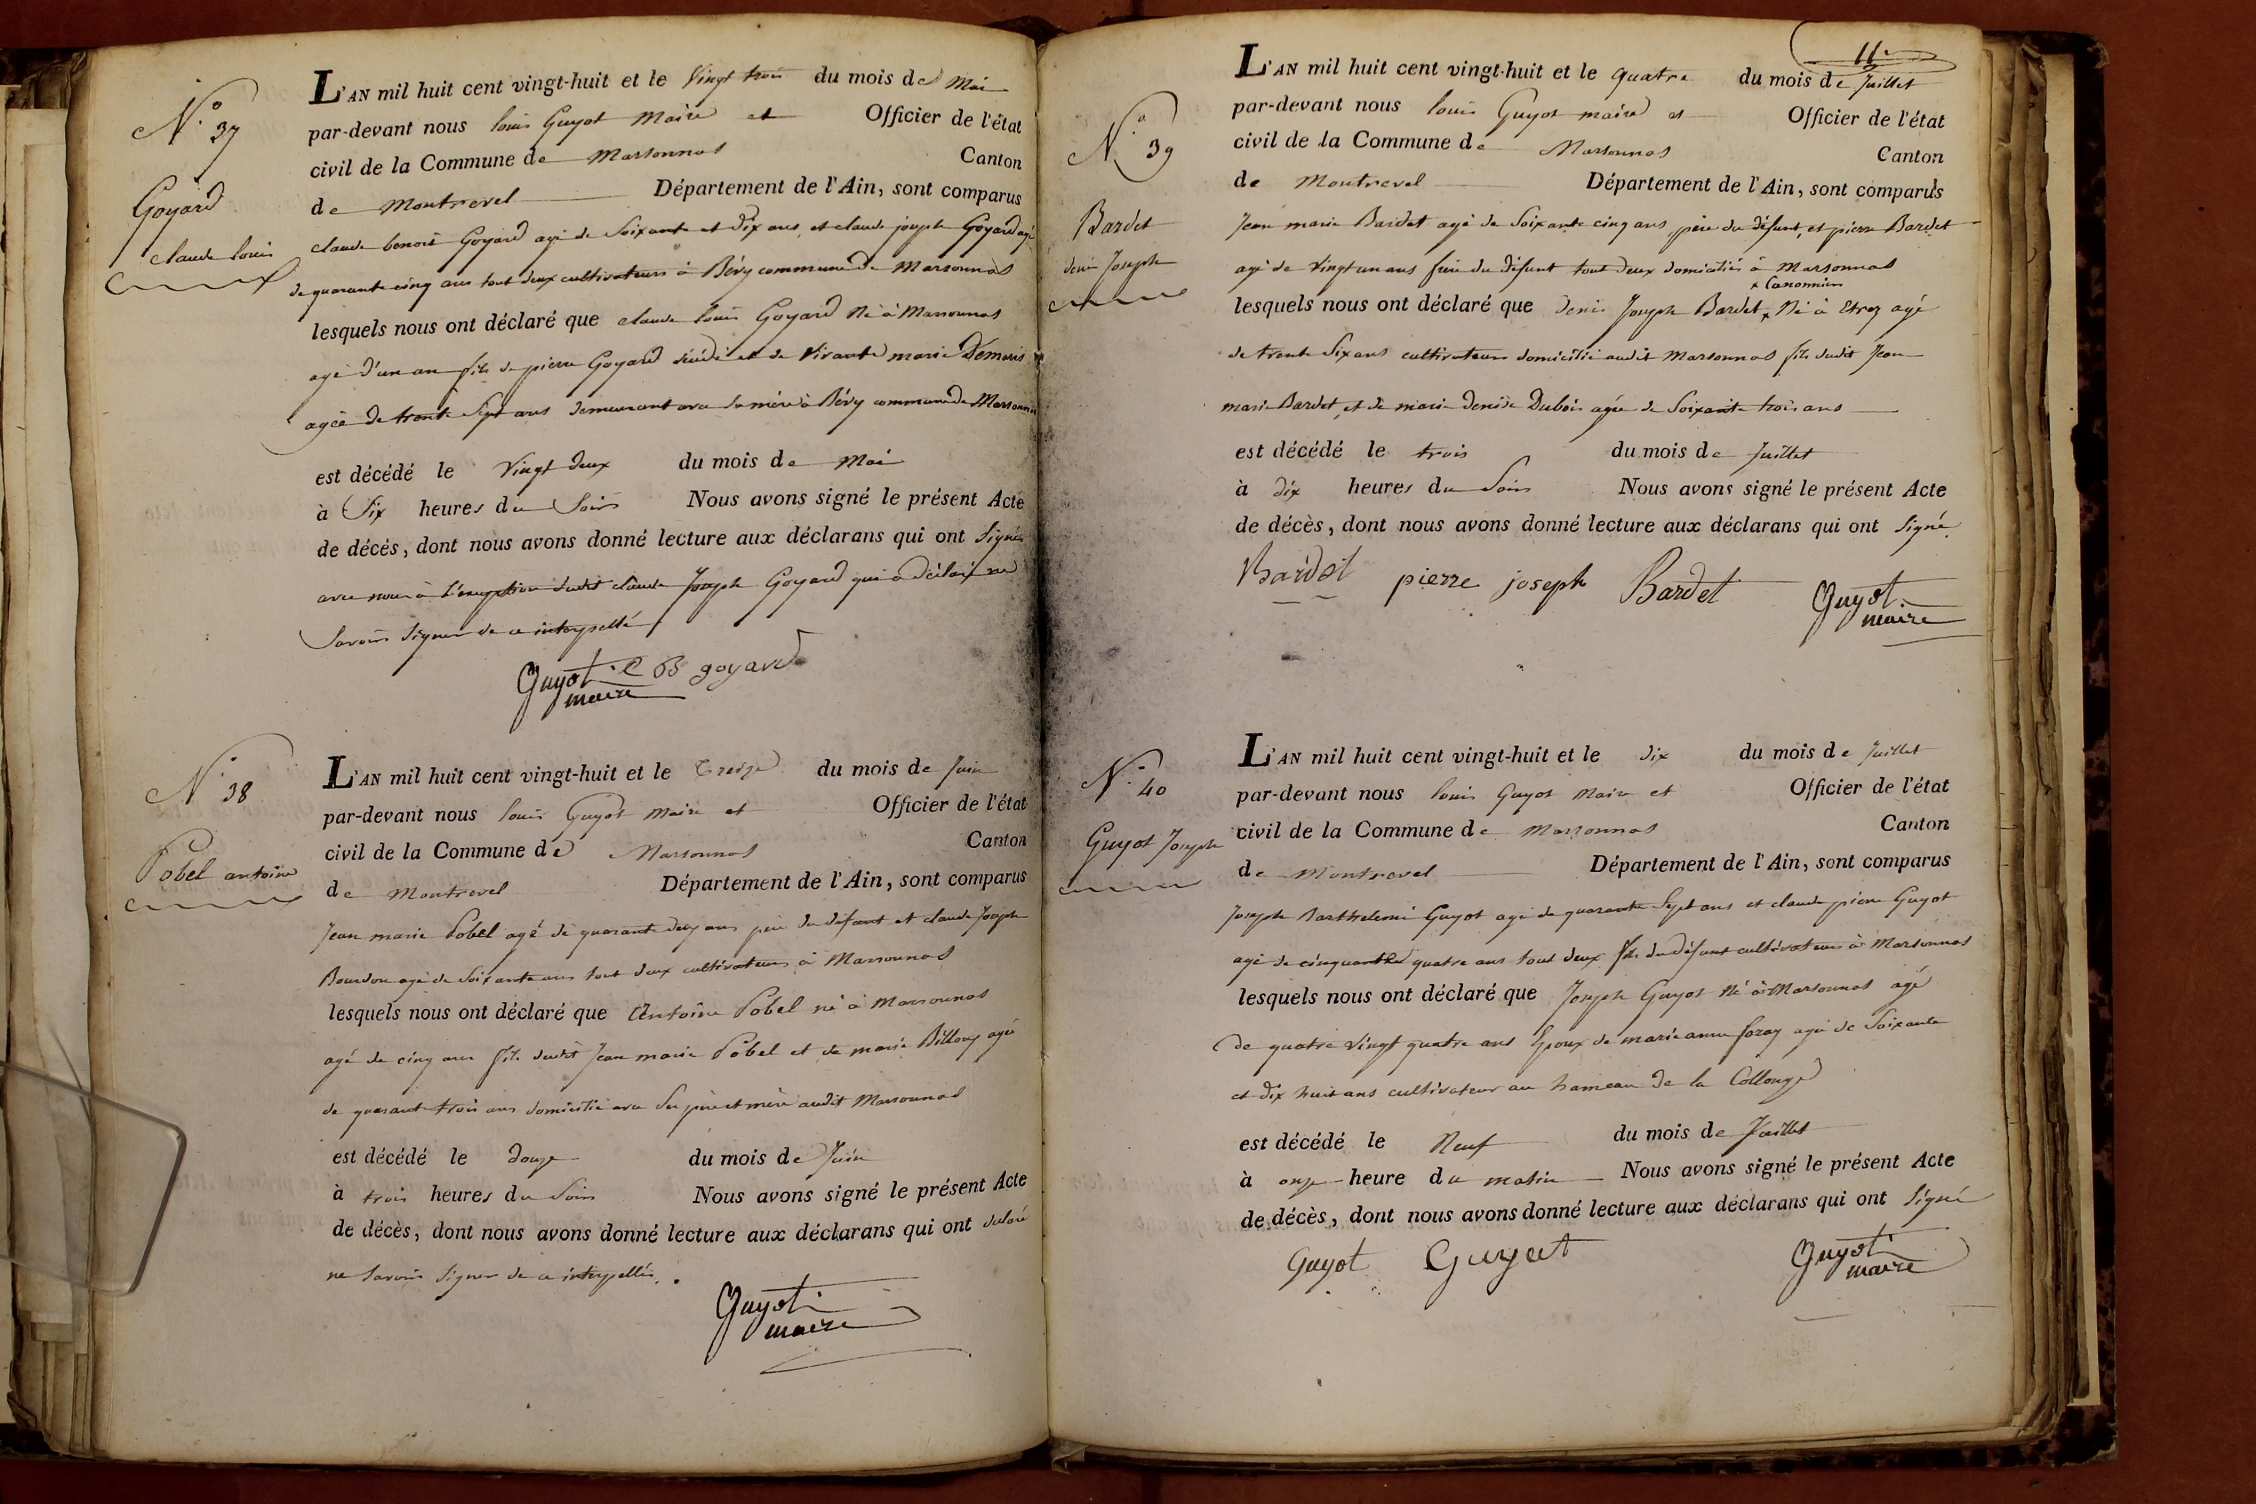 N.o 37
Goyard
claude louis
L'AN mil huit cent vingt-huit et le Vingt trois du mois de Mai
par-devant nous louis Guyot Maire et Officier de l'état
civil de la Commune de Marsonnas Canton
de Montrevel Département de l'Ain, sont comparus
claude benoit Goyard agé de Soixante et dix ans, et claude joseph Goyard agé
de quarante cinq ans tout deux cultivateurs à Bévy commune de Marsonnas
lesquels nous ont déclaré que claude louis Goyard Né à Marsonnas
agé d'un an fils de pierre Goyard décédé et de Vivante marie Demaris
agée de trente Sept ans demeurant avec sa mère à Bévy commune de Marsonnas
est décédé le Vingt deux du mois de Mai
à Six heures du Soir Nous avons signé le présent Acte
de décès, dont nous avons donné lecture aux déclarans qui ont Signés
avec nous à l'exception dudit claude Joseph Goyard qui a déclaré ne
Savoir Signer de ce interpellé
Guyot maire C B goyard
N.o 38
Pobel antoine
L'AN mil huit cent vingt-huit et le Treize du mois de Juin
par-devant nous louis Guyot Maire et Officier de l'état
civil de la Commune de Marsonnas Canton
de Montrevel Département de l'Ain, sont comparus
Jean marie Pobel agé de quarante deux ans père du défunt et claude Joseph
Bourdon agé de Soixante ans tout deux cultivateurs à Marsonnas
lesquels nous ont déclaré que Antoine Pobel né à Marsonnas
agé de cinq ans fils dudit Jean marie Pobel et de marie Billoux agée
de quarante trois ans domicilié avec Ses père et mère audit Marsonnas
est décédé le douze du mois de Juin
à trois heures du Soir Nous avons signé le présent Acte
de décès, dont nous avons donné lecture aux déclarans qui ont déclaré
ne Savoir Signer de ce interpellés.
Guyot maire
11
N.o 39
Bardet
denis Joseph
L'AN mil huit cent vingt-huit et le quatre du mois de Juillet
par-devant nous louis Guyot maire et Officier de l'état
civil de la Commune de Marsonnas Canton
de Montrevel Département de l'Ain, sont comparus
Jean marie Bardet agé de Soixante cinq ans, père du défunt, et pierre Bardet
agé de Vingt un ans frère du défunt tout deux domiciliés à Marsonnas
x Canonnier
lesquels nous ont déclaré que denis Joseph Bardet x Né à Etrez agé
de trente Six ans cultivateur domicilié audit Marsonnas fils dudit Jean
marie Bardet, et de marie denise Dubois agée de Soixante trois ans
est décédé le trois du mois de Juillet
à dix heures du Soir Nous avons signé le présent Acte
de décès, dont nous avons donné lecture aux déclarans qui ont Signé.
Bardet pierre joseph Bardet Guyot maire
N.o 40
Guyot Joseph
L'AN mil huit cent vingt-huit et le dix du mois de Juillet
par-devant nous louis Guyot Maire et Officier de l'état
civil de la Commune de Marsonnas Canton
de Montrevel Département de l'Ain, sont comparus
Joseph Barthelemi Guyot agé de quarante Sept ans et claude pierre Guyot
agé de cinquante quatre ans tout deux fils du défunt cultivateurs à Marsonnas
lesquels nous ont déclaré que Joseph Guyot Né à Marsonnas agé
de quatre vingt quatre ans Epoux de marie anne foray agée de Soixante
et dix huit ans cultivateur au hameau de la Collonge
est décédé le Neuf du mois de Juillet
à onze heure du matin Nous avons signé le présent Acte
de décès, dont nous avons donné lecture aux déclarans qui ont Signé
Guyot Guyot Guyot maire